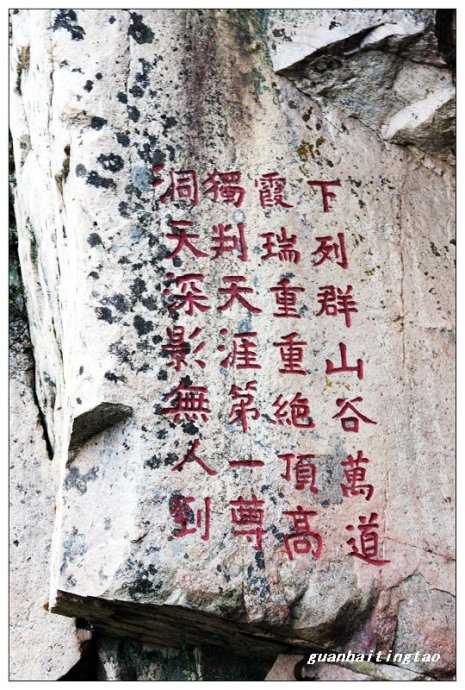 下列群山谷萬道
霞瑞重重絶頂高
獨判天涯第一尊
洞天深影無人到
guanhaitingtao